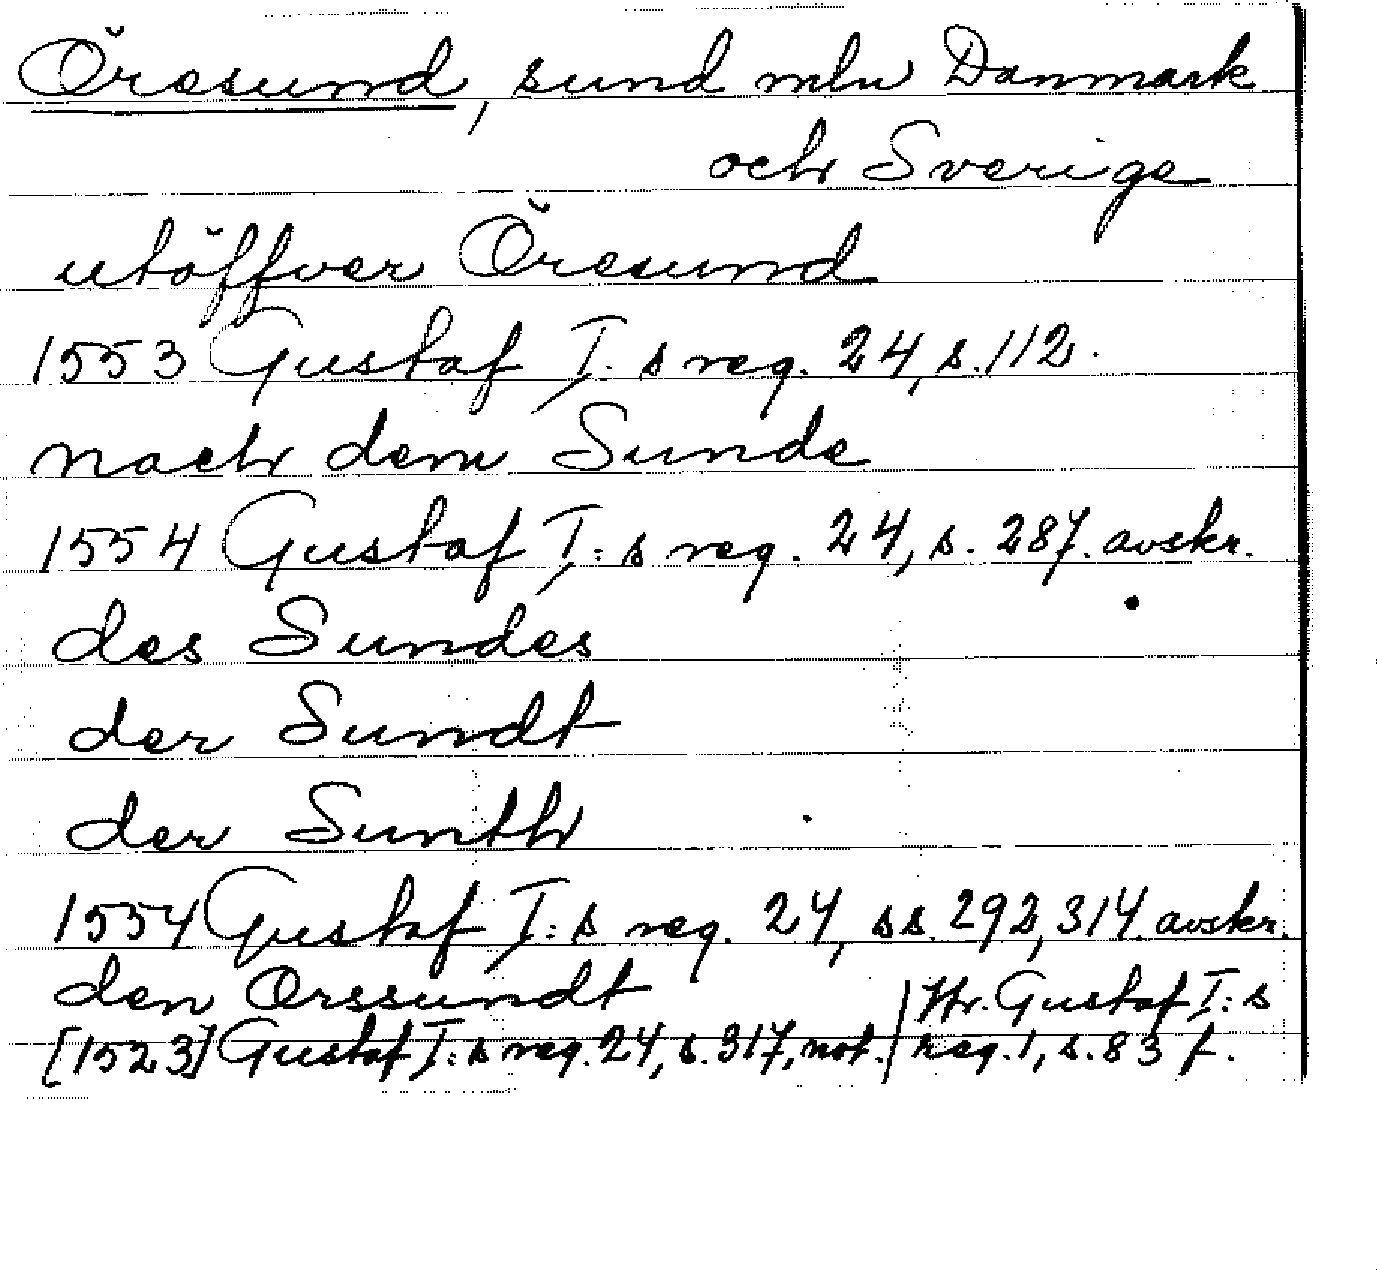 Öresund, sund mln Danmark
och Sverige
utöffver Öresund
1553 Gustaf I:s reg. 24, s. 112.
nach dem Sunde
1554 Gustaf I:s reg. 24, s. 287. avskr.
des Sundes
der Sundt
der Sunth
1554 Gustaf I:s reg. 24, ss. 292, 314. avskr.
den Orssundt
[1523] Gustaf I:s reg. 24, s. 317, not. | Tr. Gustaf I:s
reg. 1, s. 83 f.